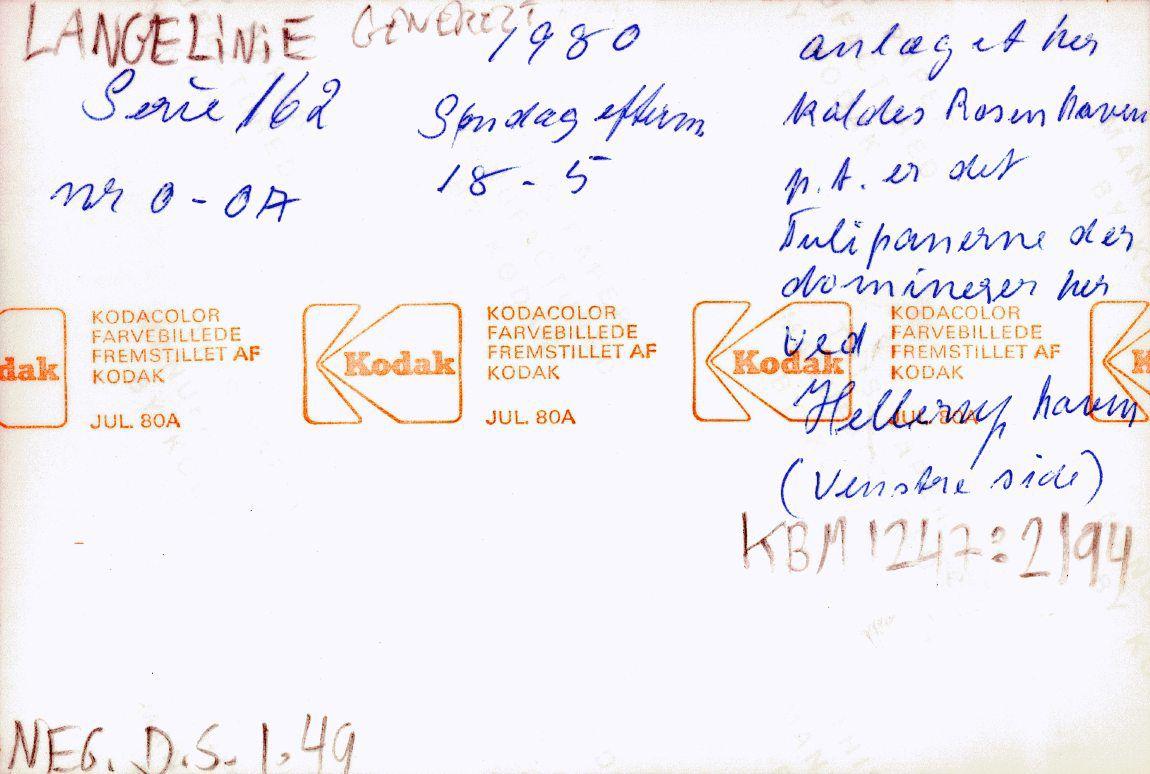 LANGELINIE GENERELT
1980
Serie 162
Søndag efterm
nr 0-0A
18-5
anlæget her
kaldes Rosenhaven
p.t. er det
Tulipanerne der
dominerer her
ved
Hellerup havn
(Venstre side)
dak
KODACOLOR
FARVEBILLEDE
FREMSTILLET AF
KODAK
JUL. 80A
Kodak
KODACOLOR
FARVEBILLEDE
FREMSTILLET AF
KODAK
JUL. 80A
Kodak
KODACOLOR
FARVEBILLEDE
FREMSTILLET AF
KODAK
JUL. 80A
K
KBM 1247:2194
NEG. D.S. 1.49